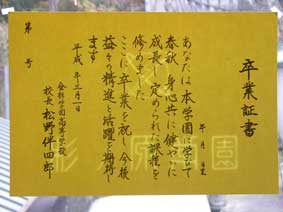 卒業証書
年 月 日生
あなたは 本学園に学びて
春秋 身心共に健やかに
成長し 定められた課程を
修めました
ここに 卒業を祝し 今後
益々の精進と活躍を期待し
ます
平成 年三月一日
学園高等学校
校長 松野伴四郎
第 号